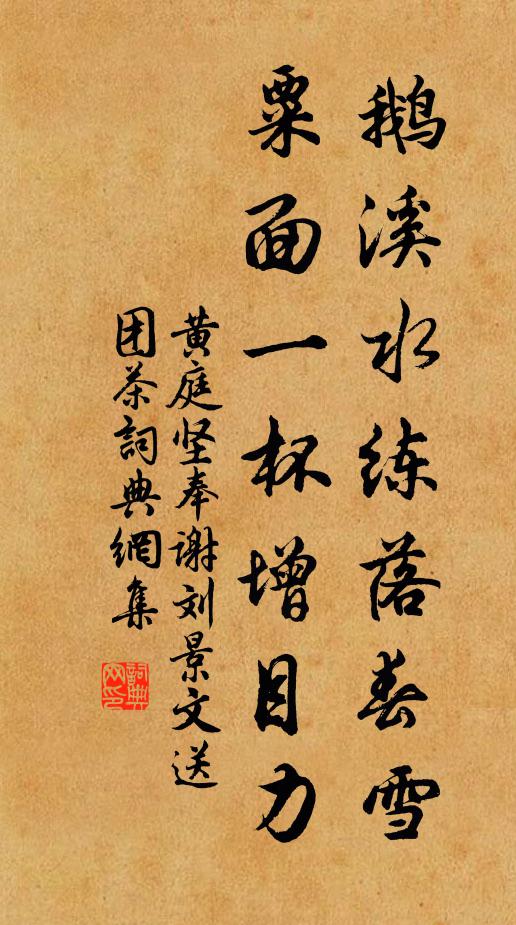 鹅溪水练落春雪
粟面一杯增目力
黄庭坚奉谢刘景文送
团茶词典網集
詞典
网印